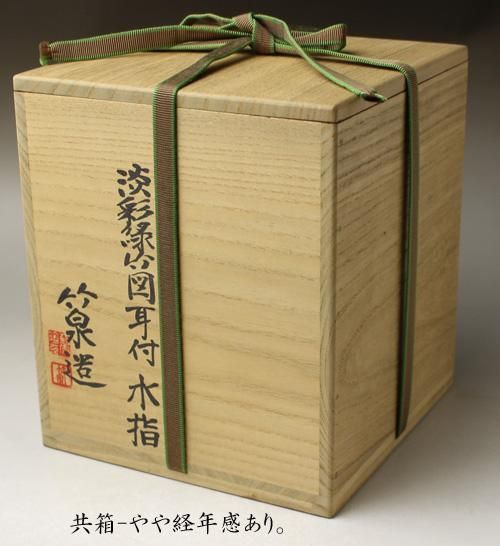 淡彩緑竹図耳付水指
竹泉造
共箱-やや経年感あり。